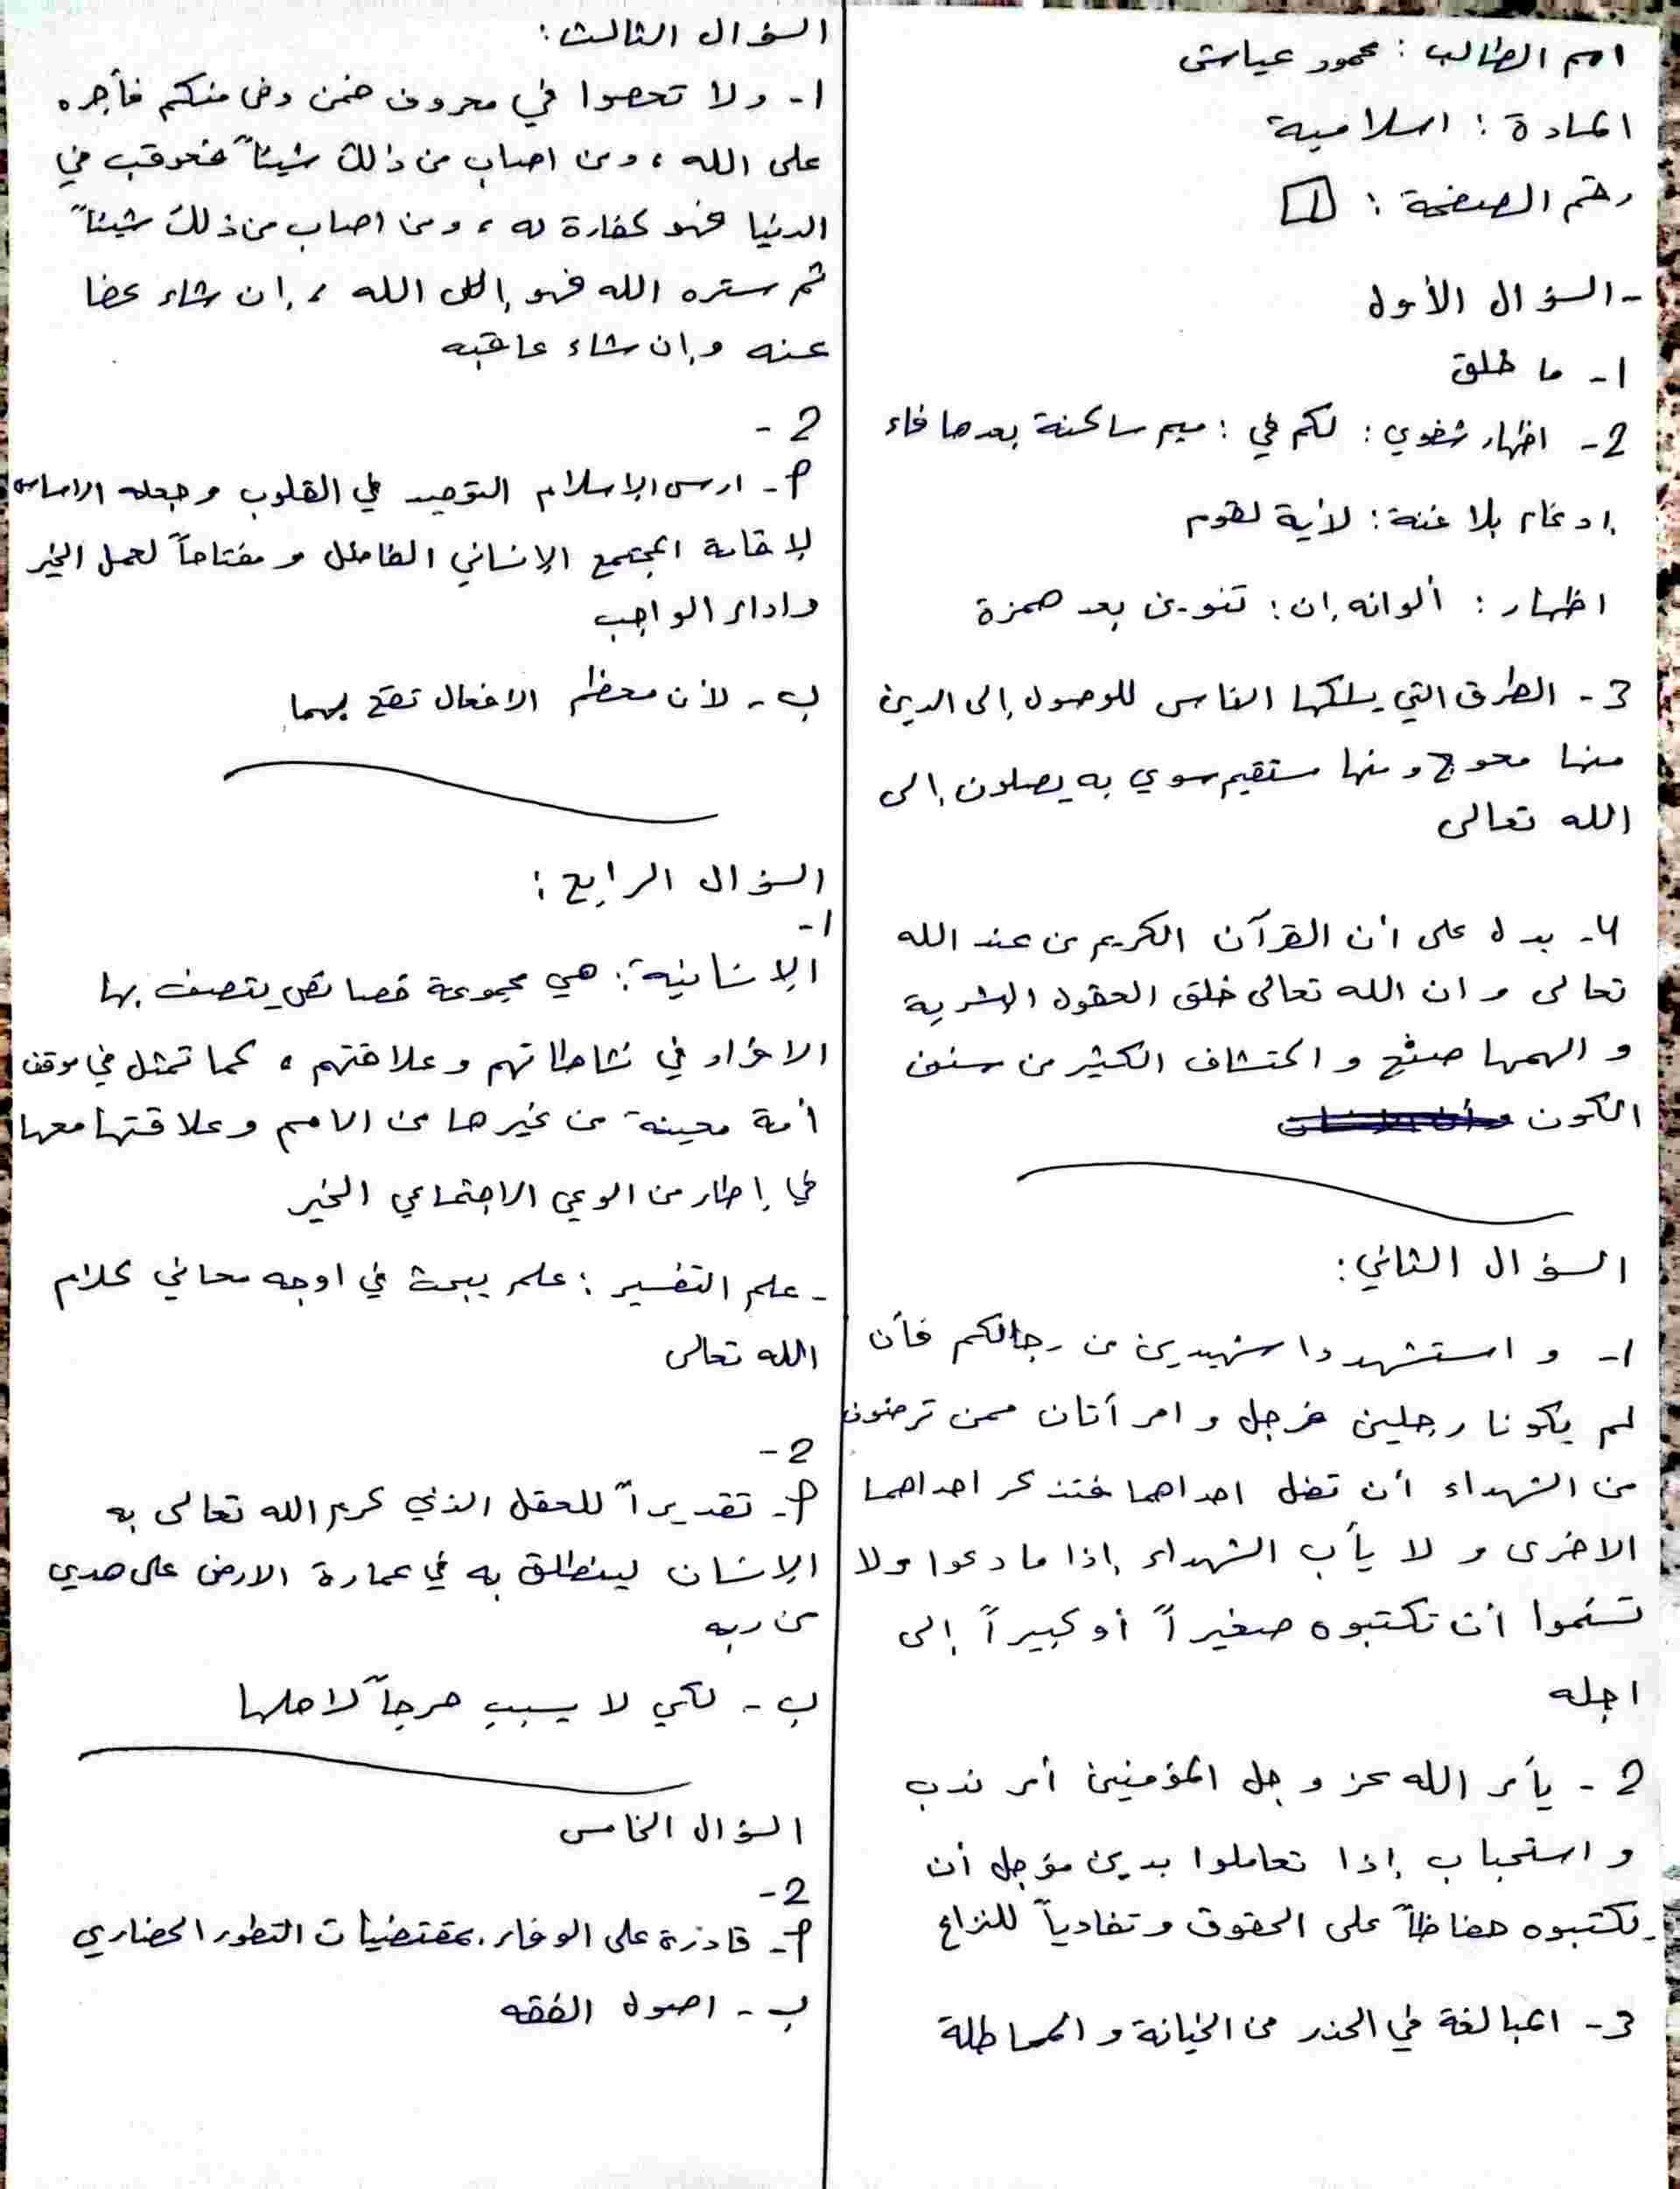 اسم الطالب : محمود عياش
المادة : اسلامية
رقم الصفحة : 1
- السؤال الأول
1- ما خلق
2- اظهار شفوي : لكم في : ميم ساكنة بعدها فاء
إدغام بلا غنة : لأية لقوم
اظهار : ألوانه إن : تنوين بعد همزة
3- الطرق التي يسلكها الناس للوصول إلى الدين
منها معوج و منها مستقيم سوي به يصلون إلى
الله تعالى
4- يدل على أن القرآن الكريم من عند الله
تعالى و ان الله تعالى خلق العقول البشرية
و الهمها صنع و اكتشاف الكثير من سنن
الكون
السؤال الثاني :
1- و استشهدوا شهيدين من رجالكم فأن
لم يكونا رجلين فرجل و امرأتان ممن ترضون
من الشهداء أن تضل احداهما فتذكر احداهما
الاخرى و لا يأب الشهداء إذا ما دعوا ولا
تسئموا أن تكتبوه صغيراً أو كبيراً إلى
اجله
2- يأمر الله عز و جل المؤمنين أمر ندب
و استحباب إذا تعاملوا بدين مؤجل أن
يكتبوه حفاظاً على الحقوق و تفادياً للنزاع
3- المبالغة في الحذر من الخيانة و المماطلة
السؤال الثالث :
1- ولا تعصوا في معروف فمن وفى منكم فأجره
على الله ، ومن اصاب من ذلك شيئاً فعوقب في
الدنيا فهو كفارة له ، ومن اصاب من ذلك شيئاً
ثم ستره الله فهو إلى الله ، إن شاء عفا
عنه وإن شاء عاقبه
2-
أ- ارسى الإسلام التوحيد في القلوب وجعله الاساس
لإقامة المجتمع الإنساني الفاضل و مفتاحاً لعمل الخير
واداء الواجب
ب- لأن معظم الافعال تقع بهما
السؤال الرابع :
1-
الإنسانية : هي مجموعة خصائص يتصف بها
الافراد في نشاطاتهم وعلاقتهم ، كما تمثل في موقف
أمة معينة من غيرها من الامم وعلاقتها معها
في إطار من الوعي الاجتماعي الخير
- علم التفسير : علم يبحث في اوجه معاني كلام
الله تعالى
2-
أ- تقديراً للعقل الذي كرم الله تعالى به
الإنسان لينطلق به في عمارة الارض على هدي
من ربه
ب- لكي لا يسبب حرجاً لاهلها
السؤال الخامس
2-
أ- قادرة على الوفاء بمقتضيات التطور الحضاري
ب- اصول الفقه